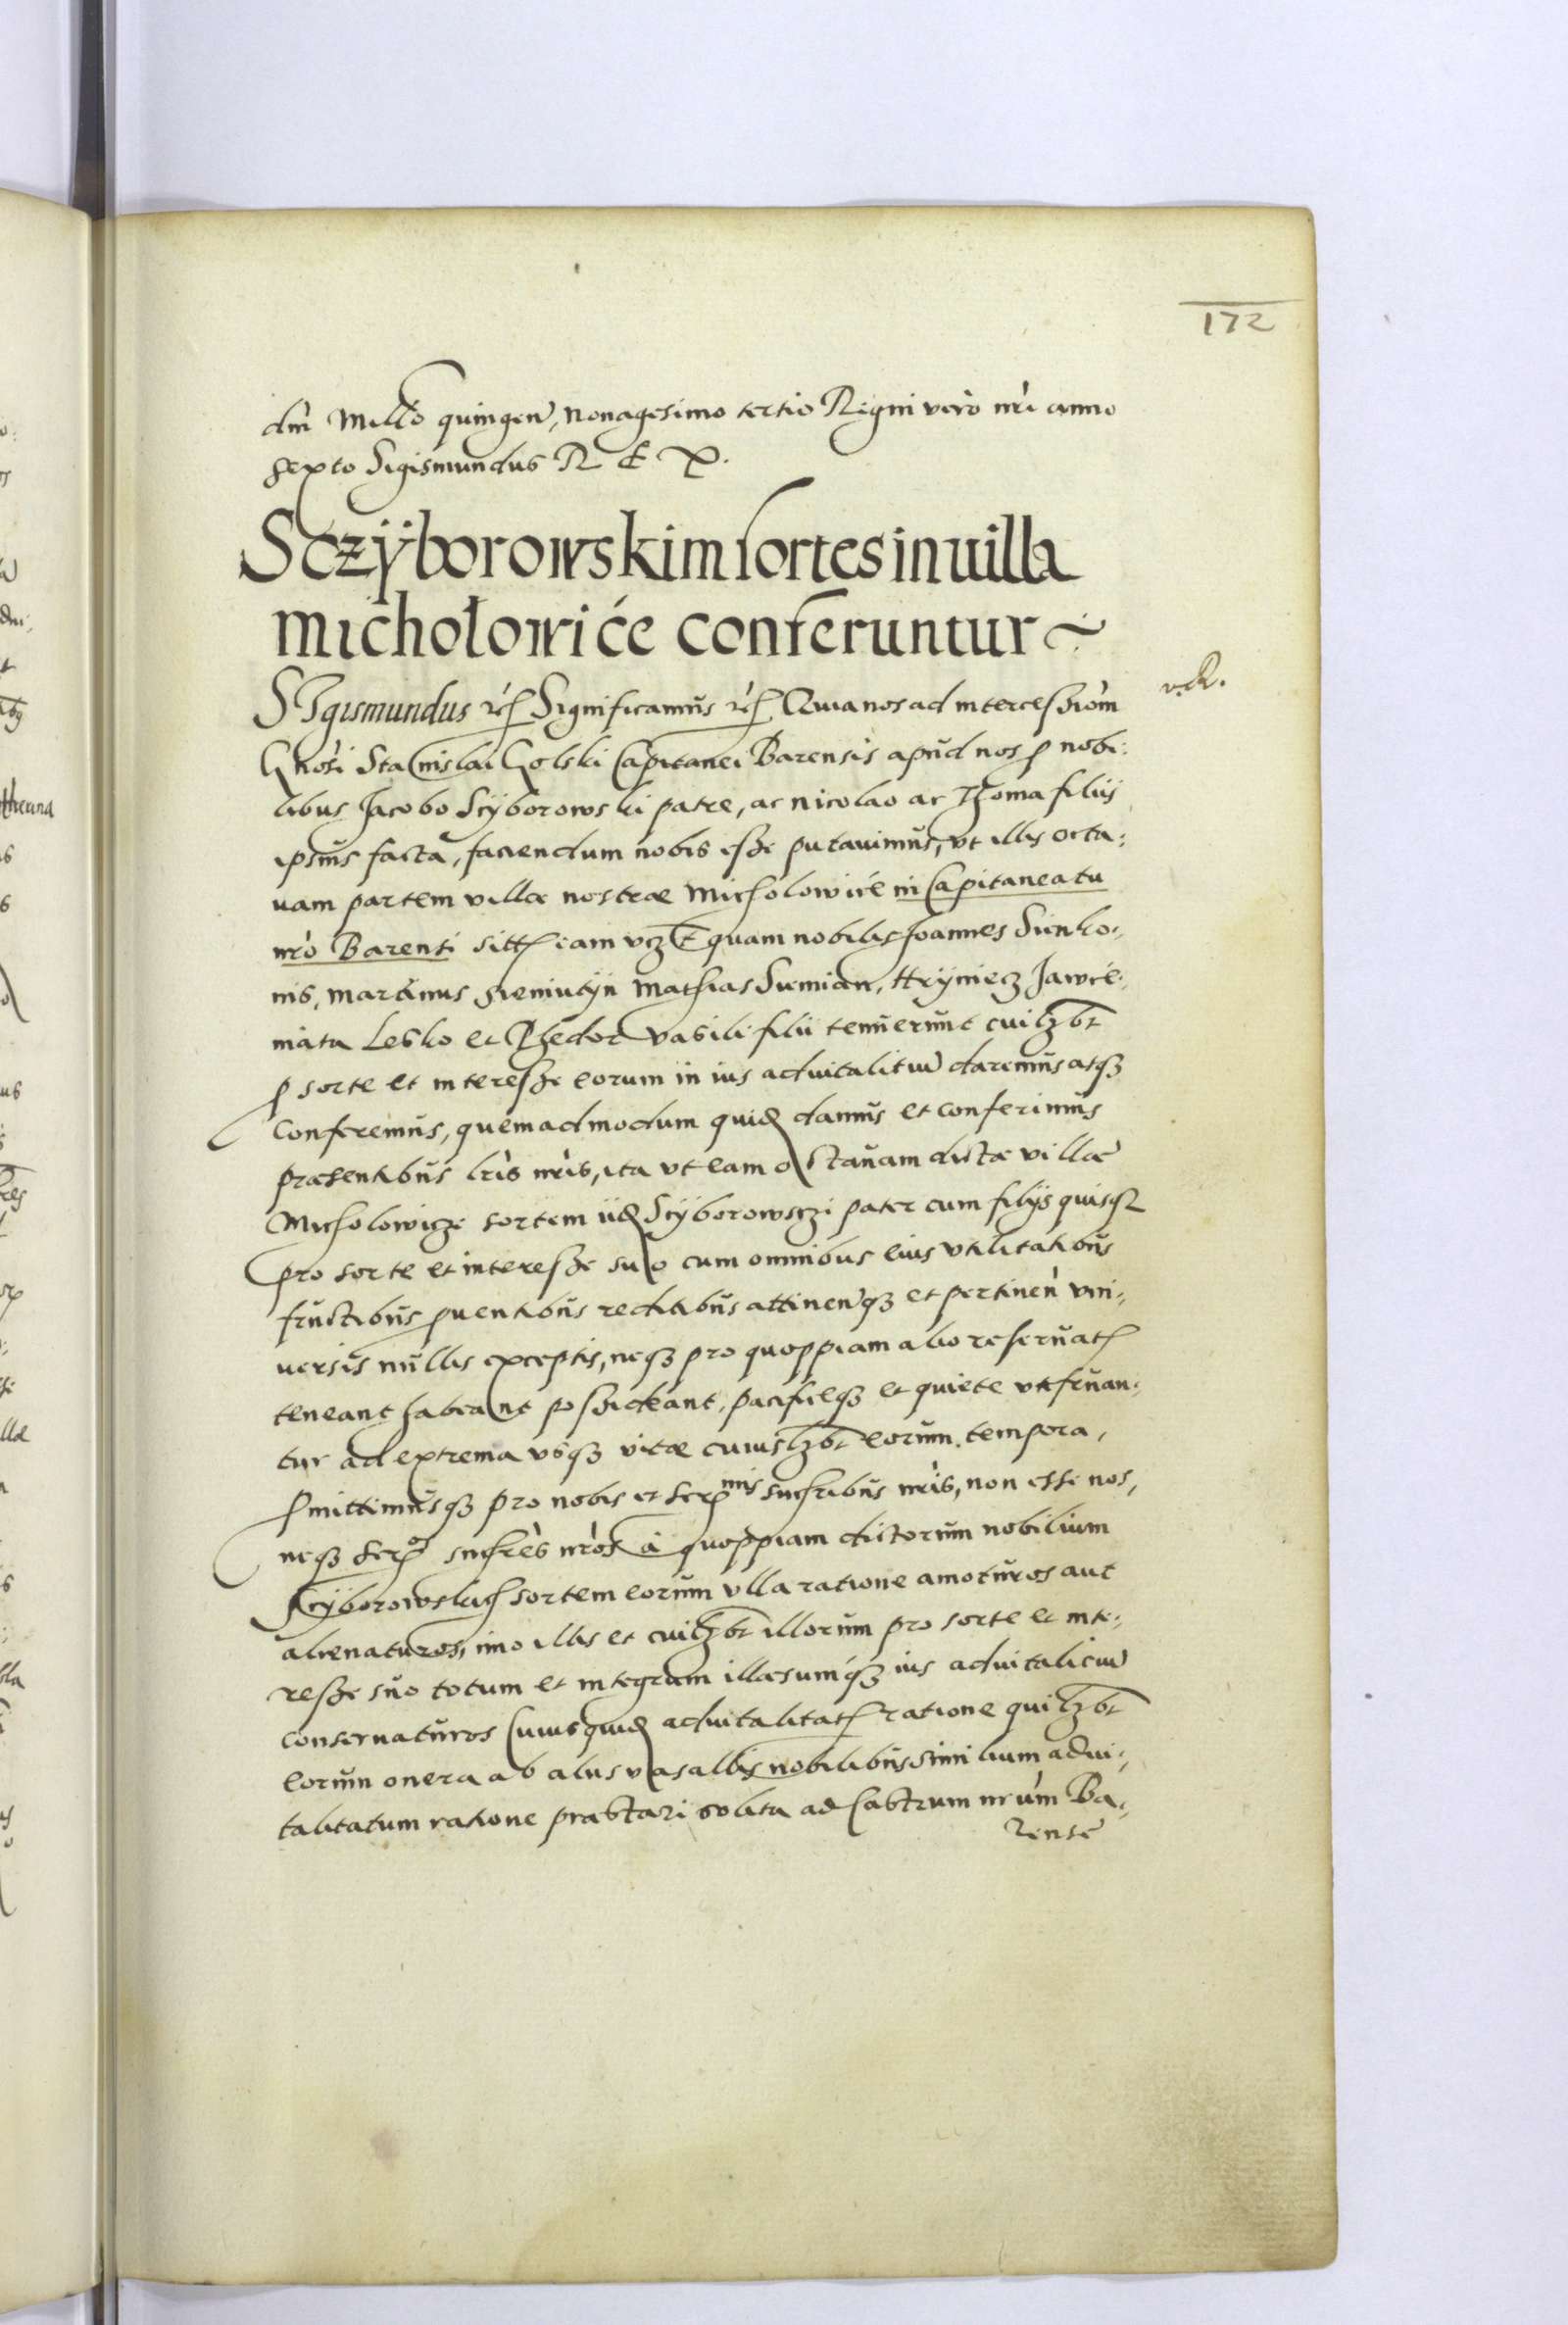 172
dni Millo quingen, Nonagesimo tertio Regni vero nri anno
Sexto Sigismundus R E X.
Sczÿborowskim sortes in uilla
Micholowiće conferuntur
v.R.
SIgismundus etc Significamus etc Quia nos ad intercessiom
Gnosi Stanislai Golski Capitanei Barensis apud nos p nobi:
libus Jacobo Scyborowski patre, ac Nicolao ac Thoma filiis
ipsius factã, faciendum nobis esse putavimus, vt illis octa:
uam partem villæ nostræ Micholowiće in Capitaneatu
nro Barensi sitt eam vcz quam nobiles Joannes Sienko:
nis, Martinus Mathias Hryniecz
Lesko et Phedor Vasili filii tenuerunt cuilzbt
p sorte et interesse eorum in ius aduitalitiũ daremus atqz
conferemus, quemadmodum quid damus et conferimus
præsentibus lris nris, ita vt eam octauam dictæ villæ
Micholowicze sortem iid Scyborowsczi pater cum filijs quisqz
pro sorte et interesse suo cum omnibus eius vtilitatibus
fructibus puentibus reditibus attinenqz et pertinen vni:
uersis nullis exceptis, neqz pro quoppiam alio reseruatis
teneant habeant possideant, pacificeqz et quiete vtifruan:
tur ad extrema vsqz vitæ cuiuslzbt eorum tempora,
Pmittimusqz pro nobis et Ser mis sucribus nris, non esse nos,
neqz Ser sucres nros à quoppiam dictorum nobilium
Scyborowskich sortem eorum vlla ratione amoturos aut
alienaturos, imo illis et cuilzbt illorum pro sorte et inte:
resse suo totum et integrum illæsumqz ius aduitalitiũ
conseruaturos Cuius quid aduitalitatis ratione quilzbt
eorum onera ab aliis vasallis nobilibus similium adui:
talitatum ratione præstari solita ad Castrum nrum Ba:
rense